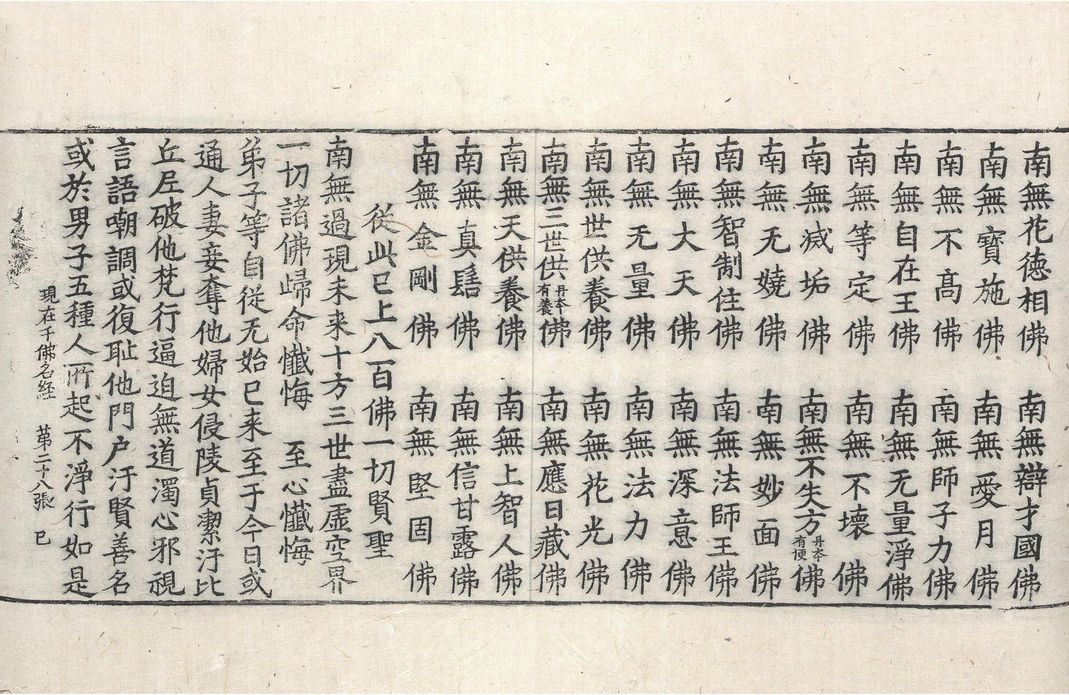 南無花德相佛　南無辯才國佛
南無寶施佛　南無愛月佛
南無不髙佛　南無師子力佛
南無自在王佛　南無无量淨佛
南無等定佛　南無不壞佛
南無減垢佛　南無不失方丹夲有便佛
南無无嬈佛　南無妙面佛
南無智制住佛　南無法師王佛
南無大天佛　南無深意佛
南無无量佛　南無法力佛
南無世供養佛　南無花光佛
南無三世供丹夲有養佛　南無應日藏佛
南無天供養佛　南無上智人佛
南無真髻佛　南無信甘露佛
南無金剛佛　南無堅固佛
從此已上八百佛一切賢聖
南無過現未来十方三世盡虛空界
一切諸佛歸命懺悔　至心懺悔
弟子等自從无始已来至于今日或
通人妻妾奪他婦女侵陵貞潔汙比
丘尼破他梵行逼迫無道濁心邪視
言語嘲調或復恥他門户汙賢善名
或於男子五種人所起不淨行如是
現在千佛名経　苐二十八張　已